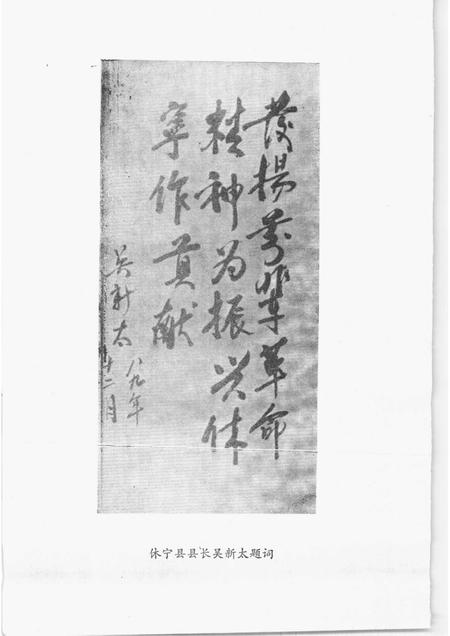 发扬前辈革命
精神为振兴休
宁作贡献
吴新太
八九年
十二月
休宁县县长吴新太题词